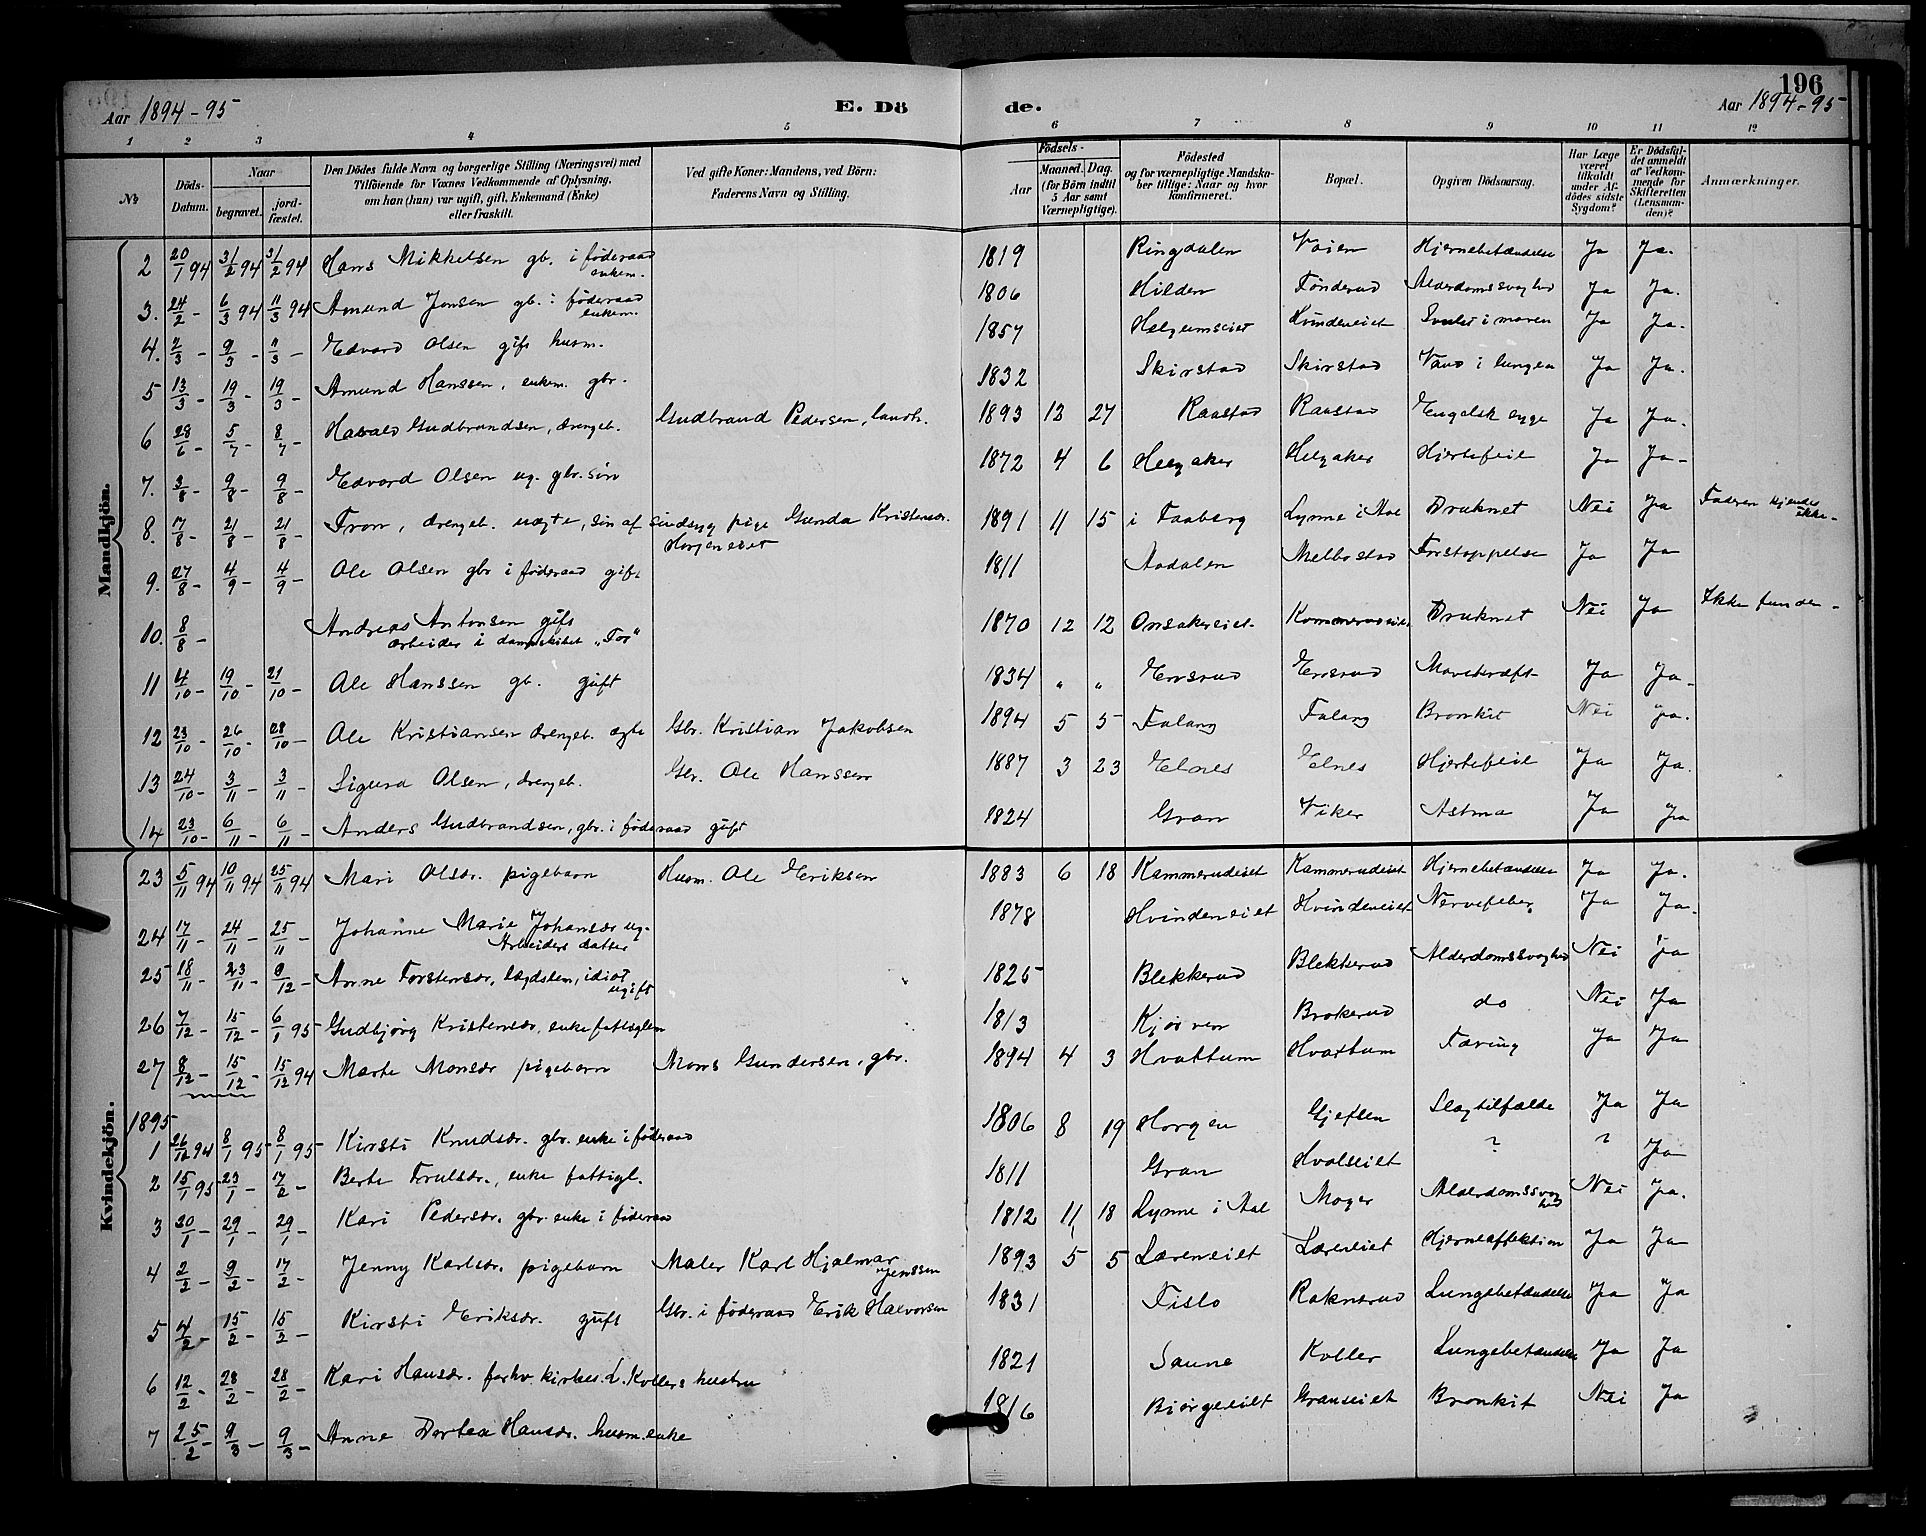 196
Aar 1894-95 E. Dö de. Aar 1894-95
1 2 3 4 5 6 7 8 9 10 11 12
No
Döds-Datum.
Naar
begravet.
jordfæstet.
Den Dödes fulde Navn og borgerlige Stilling (Næringsvei) med
Tilföiende for Voxnes Vedkommende af Oplysning,
om han (hun) var ugift, gift, Enkemand (Enke)
eller fraskilt.
Ved gifte Koner: Mandens, ved Börn:
Faderens Navn og Stilling.
Födsels-
Aar
Maaned. Dag.
(for Börn indtil
5 Aar samt
Værnepligtige).
Födested
og for værnepligtige Mandskaber tillige: Naar og hvor
konfirmeret.
Bopæl.
Opgiven Dödsaarsag.
Har Læge
været
tilkaldt
under Afdödes sidste
Sygdom?
Er Dödsfaldet anmeldt
af Vedkommende for
Skifteretten
(Lensmanden)?
Anmærkninger.
Mandkjön.
2 20/1 94 31/2 94 31/2 94 Hans Mikkelsen gb. i föderaad enkem. 1819 Ringdalen Vaien Hjernebetændelse Ja Ja.
3. 24/2 - 6/3 94 11/3 94 Amund Jonsen gb. i föderaad enkem. 1806 Hilden Tönderud Alderdomssvaghed Ja Ja.
4. 2/3 - 9/3 - 11/3 - Edvard Olsen gift husm. 1857 Helgumseiet Hvindeneiet i maven Ja Ja.
5 13/3 - 19/3 - 19/3 - Amund Hanssen, enkem. gbr. 1832 Skirstad Skirstad Vand i lungen Ja Ja.
6 28/6 - 5/7 - 8/7 - Havald Gudbrandsen, drengeb. Gudbrand Pedersen, landh. 1893 12 27 Raastad Raastad Engelsk syge Ja Ja.
7. 3/8 - 9/8 - 9/8 - Edvard Olsen ug. gbr. sön 1872 4 6 Helgaker Helgaker Hjertefeil Ja Ja-
8. 17/8 - 21/8 - 21/8 - Tron, drengeb. uægte, sön af sindssyg pige Gunda Kristensdr. Horjeneiet 1891 11 15 i Faaberg Lynne i Aal Druknet Nei Ja Faderen kjendes ikke-
9. 27/8 - 4/9 - 4/9 - Ole Olsen gbr i föderaad gift 1811 Aadalen Melbostad Forstoppelse Ja Ja
10. 8/8 - Andreas Antonsen gift arbeider i dampskibet "Tor" 1870 12 12 Onsakereiet Kammerudeiet Druknet Nei Ja Ikke funden-
11 4/10 - 19/10 - 21/10 - Ole Hanssen gb. gift 1834 " " Ensrud Ensrud Mavekræft Ja Ja-
12 23/10 - 26/10 - 28/10 - Ole Kristiansen drengeb. ægte Gbr. Kristian Jakobsen 1894 5 5 Falang Falang Bronkit Nei Ja.
13 24/10 - 3/11 - 3/11 - Sigurd Olsen, drengeb. Gbr. Ole Hanssen 1887 3 23 Elnes Elnes Hjertefeil Ja Ja.
14 23/10 - 6/11 - 6/11 - Anders Gudbrandsen, gbr. i föderaad gift 1824 Gran Viker Astma Ja Ja
Kvindekjön.
23 5/11 94 10/11 94 25/11 94 Mari Olsdr. pigebarn Husm. Ole Eriksen 1883 6 18 Kammerudeiet Kammerudeiet Hjernebetændelse Ja Ja.
24 17/11 - 24/11 - 25/11 - Johanne Marie Johansdr ug. Arbeiders datter 1878 Hvindeneiet Hvindeneiet Nervefeber Ja Ja.
25 18/11 - 23/11 - 9/12 - Anne Torstensdr, lægdslem, idiot ugift 1825 Blekkerud Blekkerud Alderdomssvaghed Nei Ja
26 7/12 - 15/12 - 6/1 95 Gudbjørg Kristensdr, enke fattiglem 1813 Kjørven Brokerud do Nei Ja
27 8/12 - 15/12 - 15/12 94 Marte Monsdr pigebarn Mons Gundersen, gbr. 1894 4 3 Hvattum Hvattum Tæring Ja Ja
1895
1 26/12 94 8/1 95 8/1 95 Kirsti Knudsdr. gbr. enke i föderaad 1806 8 19 Horgen Gjeflen Slagtilfælde Ja Ja
2 15/1 95 23/1 - 17/2 - Berte Trulsdr., enke fattigl. 1811 Gran Hvalseiet ? ? Ja
3 20/1 - 29/1 - 29/1 - Kari Pedersdr. gbr. enke i föderaad 1812 11 18 Lynne i Aal Moger Alderdomssvaghed Nei Ja.
4 2/2 - 9/2 - 17/2 - Jenny Karlsdr. pigebarn Maler Karl Hjalmar Jenssen 1893 5 5 Læreneiet Læreneiet Hjerneaffektion Ja Ja
5 4/2 - 15/2 - 15/2 - Kirsti Eriksdr. gift Gbr. i föderaad Erik Halvorsen 1831 Tislo Raknerud Lungebetændelse Ja Ja
6 12/2 - 28/2 - 28/2 - Kari Hansdr. forhv. kirkes. L. Kollers hustru 1821 Sanne Koller Lungebetændelse Ja Ja
7 25/2 - 9/3 - 9/3 - Anne Dortea Hansdr. husm. enke 1816 Bjørgeeiet Graneiet Bronkit Nei Ja